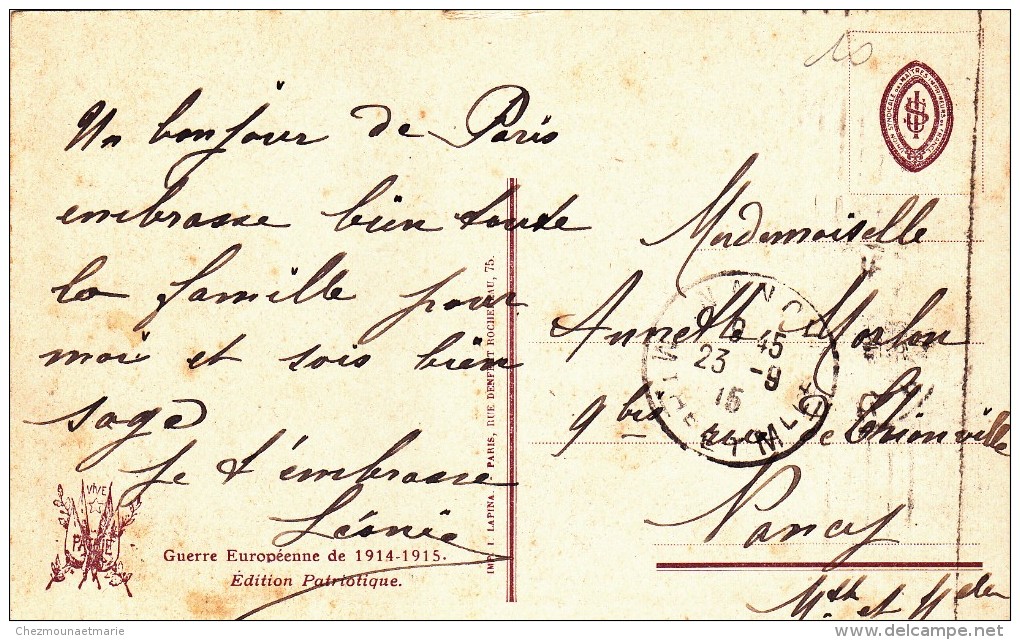 10
UNION SYNDICALE DES MAITRES IMPRIMEURS DE FRANCE
Un bonjour de Paris
embrasse bien toute
la famille pour
moi et sois bien
sage
Je t'embrasse
Léonie
VIVE
Guerre Européenne de 1914-1915.
Édition Patriotique.
PARIS, RUE DENFERT ROCHEREAU, 75.
IMP. LAPINA.
Mademoiselle
Annette
9 bis rue de Thionville
Nancy
Mthe et Mden
NANCY
45
23 -9
15
MEURTHE ET MLLE
Chezmounaetmarie
www.delcampe.net